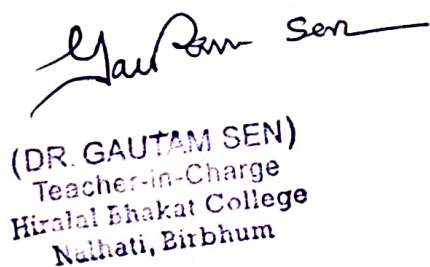 Gautam Sen
(DR. GAUTAM SEN)
Teacher-in-Charge
Hiralal Bhakat College
Nalhati, Birbhum